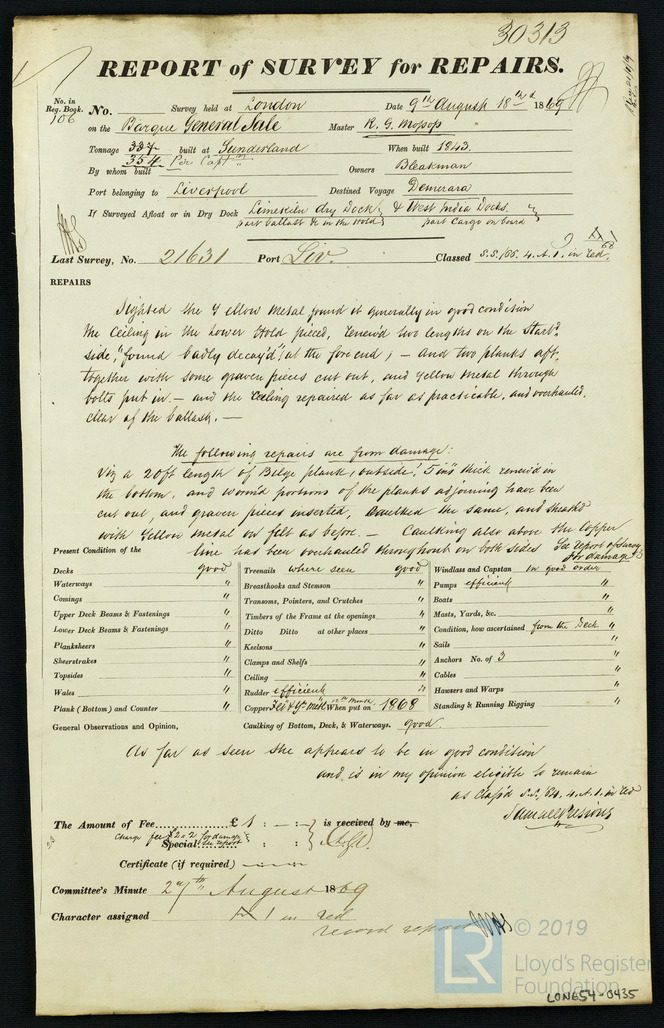 30313
REPORT of SURVEY for REPAIRS.
No. in Reg. Book. 106
No. Survey held at London Date 9th August 18th 1869
on the Barque General Sale Master R. G. Mopsop
Tonnage 337 built at Sunderland When built 1843.
354 Per Capt
By whom built Owners Bleakman
Port belonging to Liverpool Destined Voyage Demerara
If Surveyed Afloat or in Dry Dock Limekiln Dry Dock & West India Docks.
part ballast &c in the Hold part Cargo on board
Last Survey, No. 21631 Port Liv. Classed S.S./65. 4. A. 1. in red.
REPAIRS
Sighted the Yellow metal found it generally in good condition
the Ceiling in the Lower Hold pieced, renew'd two lengths on the Starbd
side, "found badly decay'd", (at the fore end; - and two planks aft,
together with some graven pieces cut out, and Yellow metal through
bolts put in. - and the Ceiling repaired as far as practicable, and overhauled.
clear of the ballast. -
The following repairs are from damage:
Viz a 20ft length of Belge plank, outside, 5 ins thick renew'd in
the bottom, and worm'd portions of the planks adjoining have been
cut out, and graven pieces inserted, Caulked the same, and sheath'd
with Yellow metal on felt as before. - Caulking also above the Copper
line has been overhauled throughout on both sides See report of Survey
for damage
Present Condition of the
Decks good Treenails where seen good Windlass and Capstan in good order
Waterways " Breasthooks and Stemson " Pumps efficient "
Comings " Transoms, Pointers, and Crutches " Boats "
Upper Deck Beams & Fastenings " Timbers of the Frame at the openings " Masts, Yards, &c. "
Lower Deck Beams & Fastenings " Ditto Ditto at other places " Condition, how ascertained from the Deck "
Planksheers " Keelsons " Sails "
Sheerstrakes " Clamps and Shelfs " Anchors No. of 3 "
Topsides " Ceiling " Cables "
Wales " Rudder efficient " Hawsers and Warps "
Plank (Bottom) and Counter " Copper When put on 1868 Standing & Running Rigging "
General Observations and Opinion, Caulking of Bottom, Deck, & Waterways. good.
As far as seen she appears to be in good condition
and is in my opinion eligible to remain
as Class'd S.S./64. 4. A. 1. in red
The Amount of Fee £ 1 : - : - is received by me,
Charge fee £2.2 for damage
see report
Special : :
Certificate (if required)
Committee's Minute 27th August 1869
Character assigned A 1 in red
record repair
LR
© 2019
Lloyd's Register
Foundation
LON654-0435